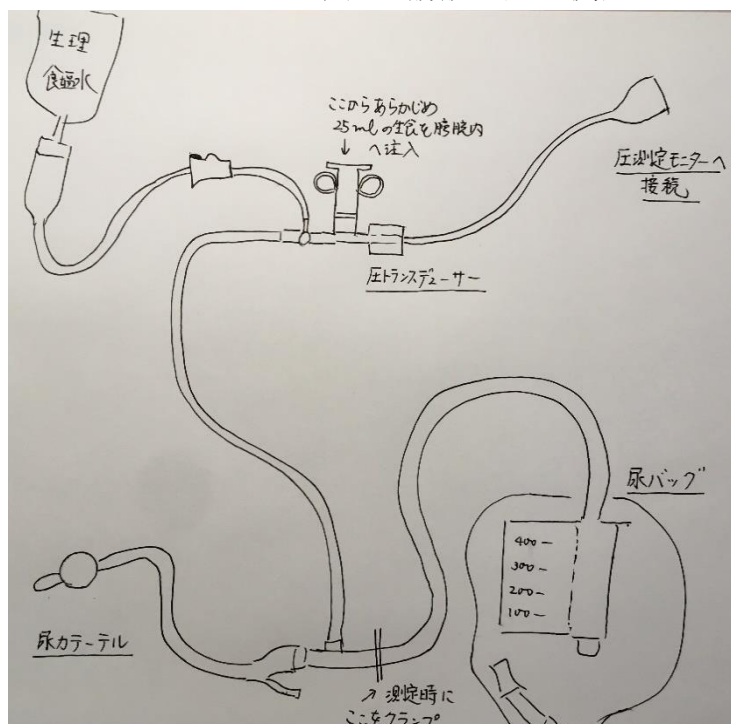 生理
食塩水
ここからあらかじめ
25mlの生食を膀胱内
へ注入
圧測定モニターへ
接続
圧トランスデューサー
尿バッグ
400-
300-
200-
100-
尿カテーテル
測定時に
ここをクランプ